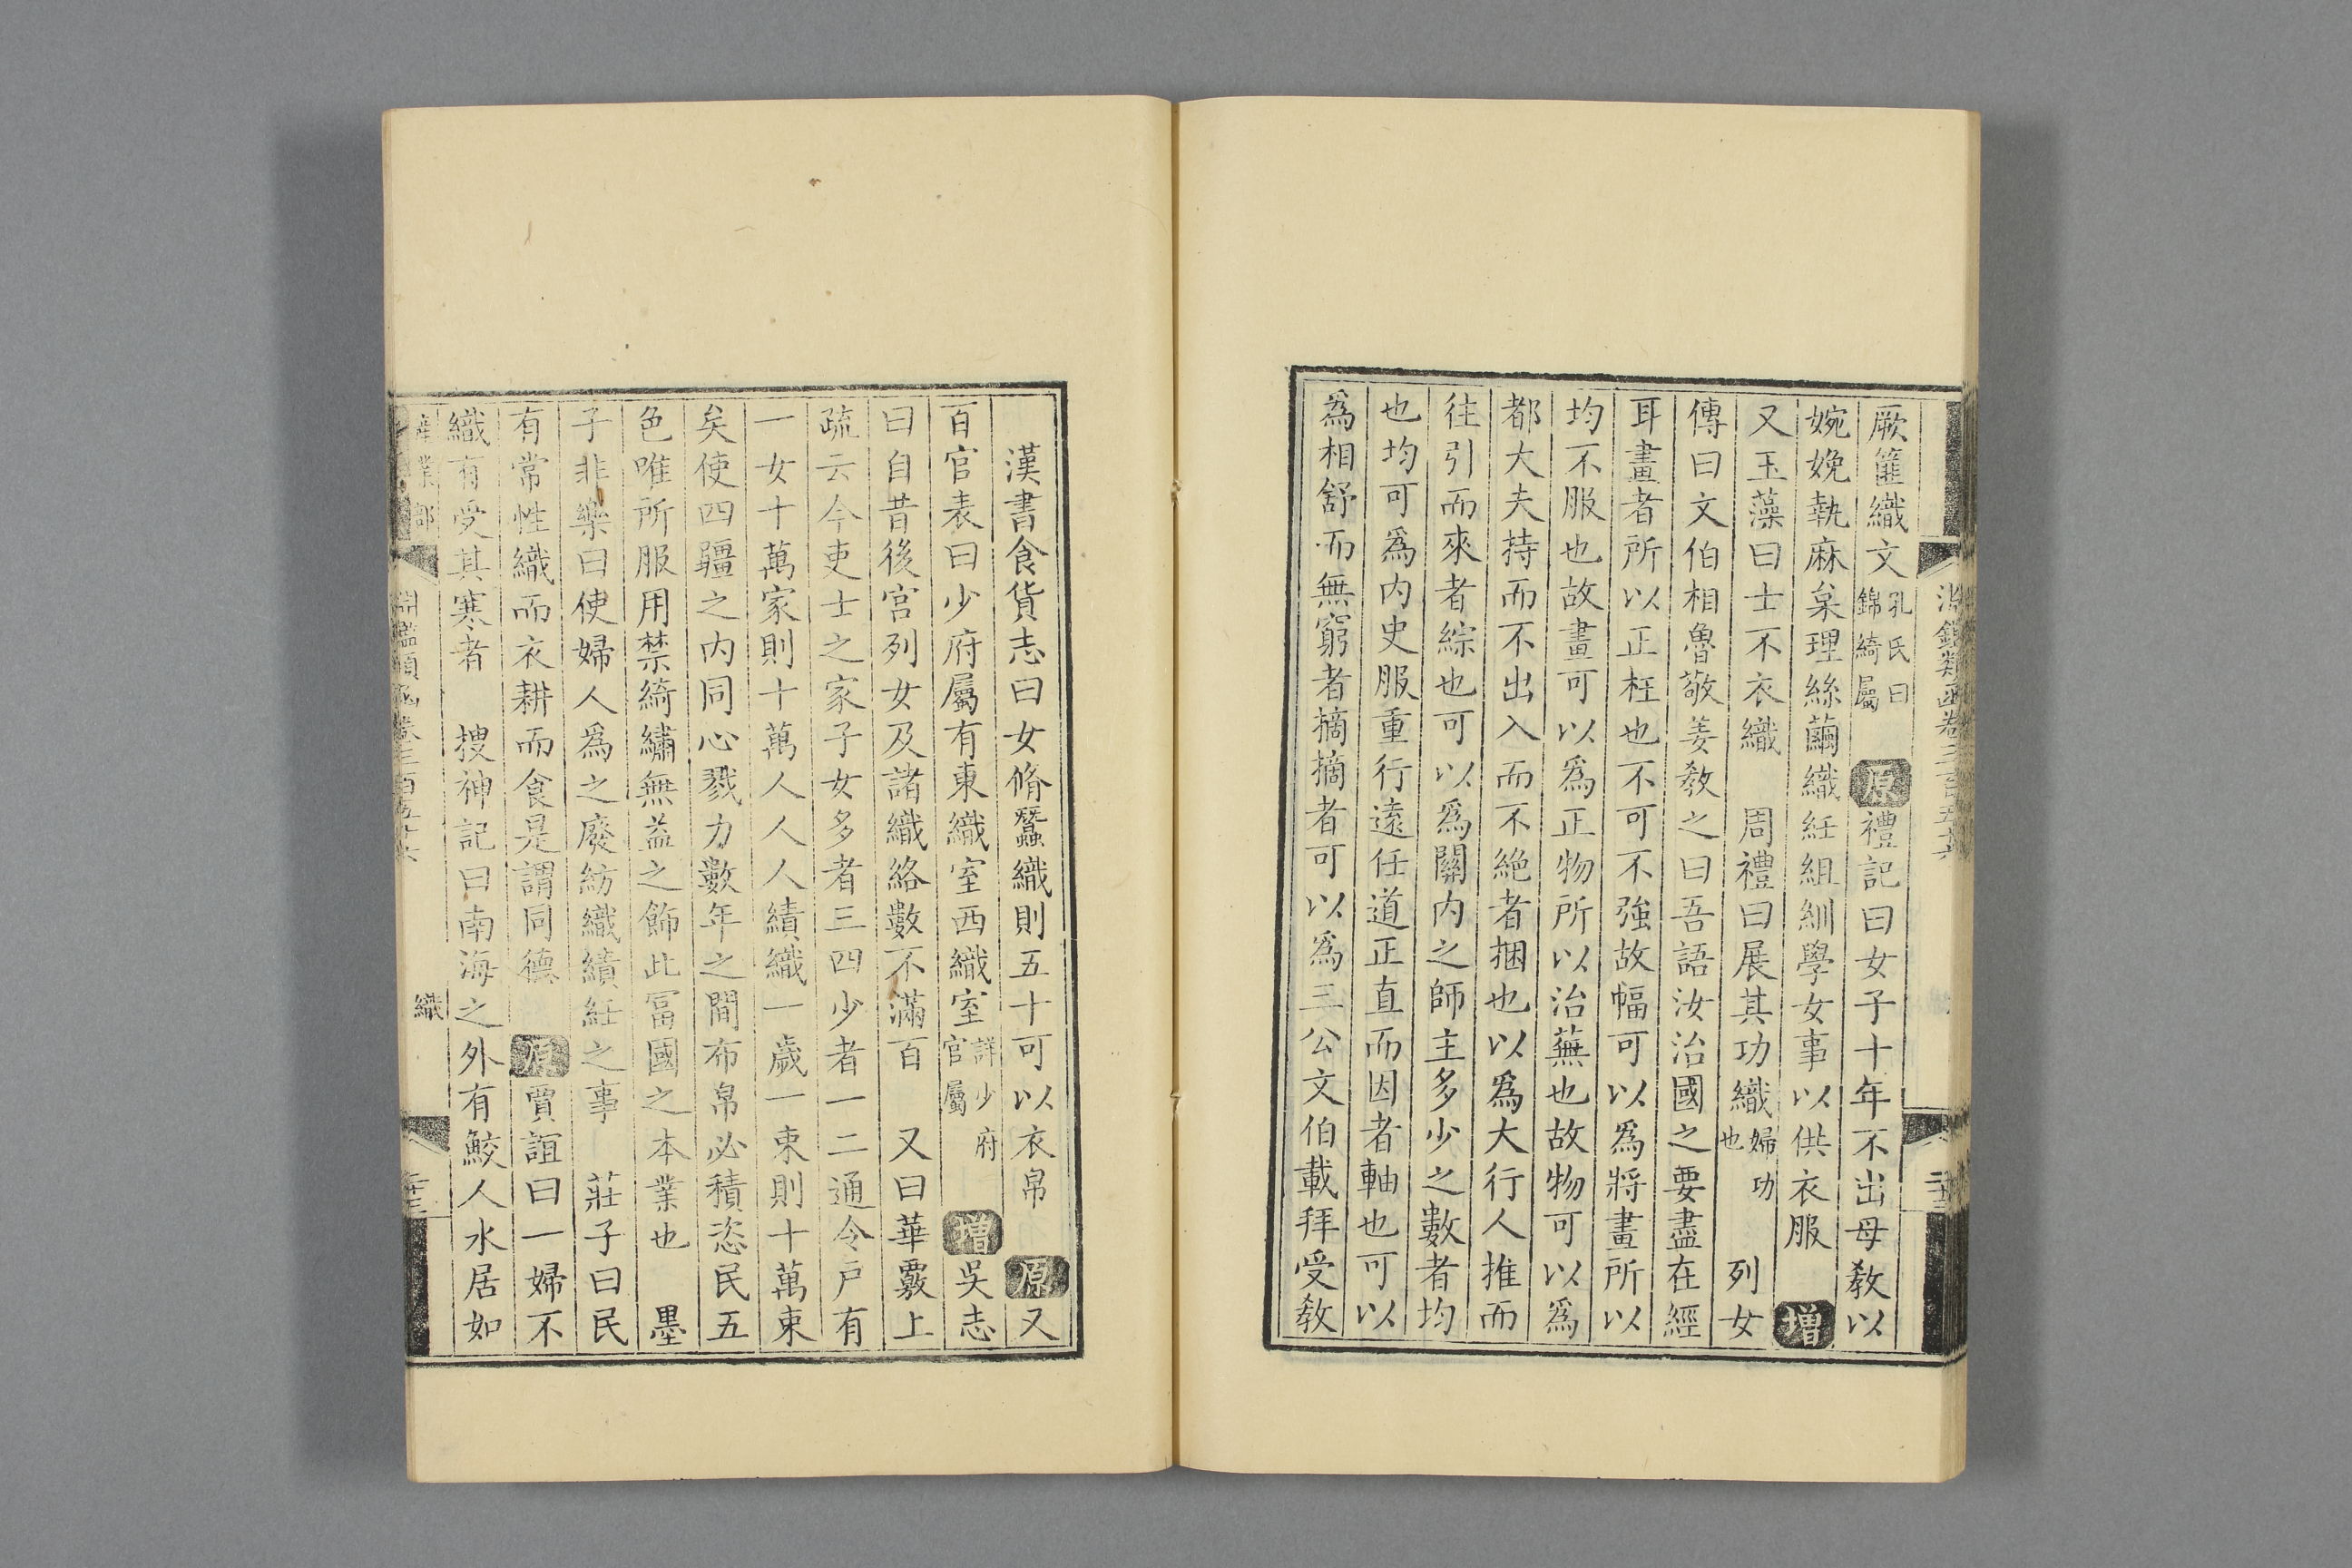 厥篚織文孔氏曰錦綺屬 原禮記曰女子十年不出母敎以
婉娩執麻枲理絲繭織紝組紃學女事以供衣服 增
又玉藻曰士不衣織 周禮曰展其功織婦功也 列女
傳曰文伯相魯敬姜敎之曰吾語汝治國之要盡在經
耳畫者所以正枉也不可不強故幅可以爲將畫所以
均不服也故畫可以爲正物所以治蕪也故物可以爲
都大夫持而不出入而不絶者捆也以爲大行人推而
往引而來者綜也可以爲關内之師主多少之數者均
也均可爲内史服重行遠任道正直而因者軸也可以
爲相舒而無窮者摘摘者可以爲三公文伯載拜受敎
漢書食貨志曰女脩蠶織則五十可以衣帛 原又
百官表曰少府屬有東織室西織室詳少府官屬 增吳志
曰自昔後宫列女及諸織絡數不滿百 又曰華覈上
疏云今吏士之家子女多者三四少者一二通令户有
一女十萬家則十萬人人人績織一歲一束則十萬束
矣使四疆之内同心戮力數年之間布帛必積恣民五
色唯所服用禁綺繡無益之飾此富國之本業也 墨
子非樂曰使婦人爲之廢紡織績紝之事 莊子曰民
有常性織而衣耕而食是謂同德 原賈誼曰一婦不
織有受其寒者 搜神記曰南海之外有鮫人水居如
產業部 淵鑑類函卷三百五十六 織 二十三